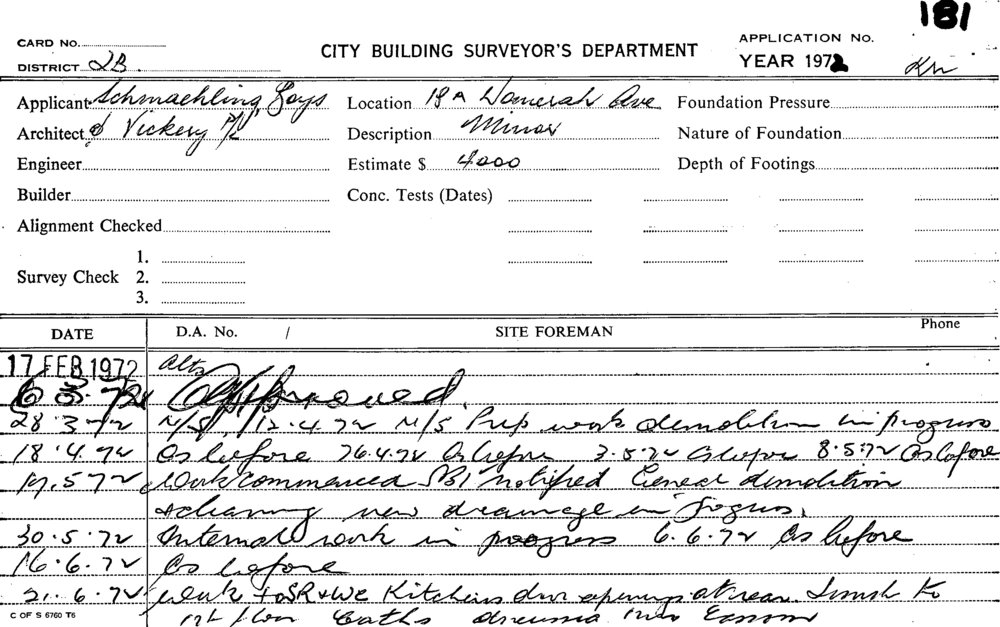 181
CARD No.
CITY BUILDING SURVEYOR'S DEPARTMENT
APPLICATION No.
DISTRICT 2B
YEAR 1972
Applicant Schmaehling, Loys Location 18A Womerah Ave Foundation Pressure
Architect & Vickery P/L Description Minor Nature of Foundation
Engineer Estimate $ 4000 Depth of Footings
Builder Conc. Tests (Dates)
Alignment Checked
1.
Survey Check 2.
3.
DATE D.A. No. / SITE FOREMAN Phone
17 FEB 1972 Alts
6 3.72 Approved.
28 3 72 N/S 12.4.72 N/S Prep work demolition in progress
18.4.72 As before 26.4.72 As before 2.5.72 As before 8.5.72 As before
19.5 72 Work commenced notified General demolition
& cleaning new drainage in progress.
30.5.72 Internal work in progress 6.6.72 As before
16.6.72 As before
21.6.72 work to SR & WC Kitchens openings at rear
C OF S 6760 T6 floor